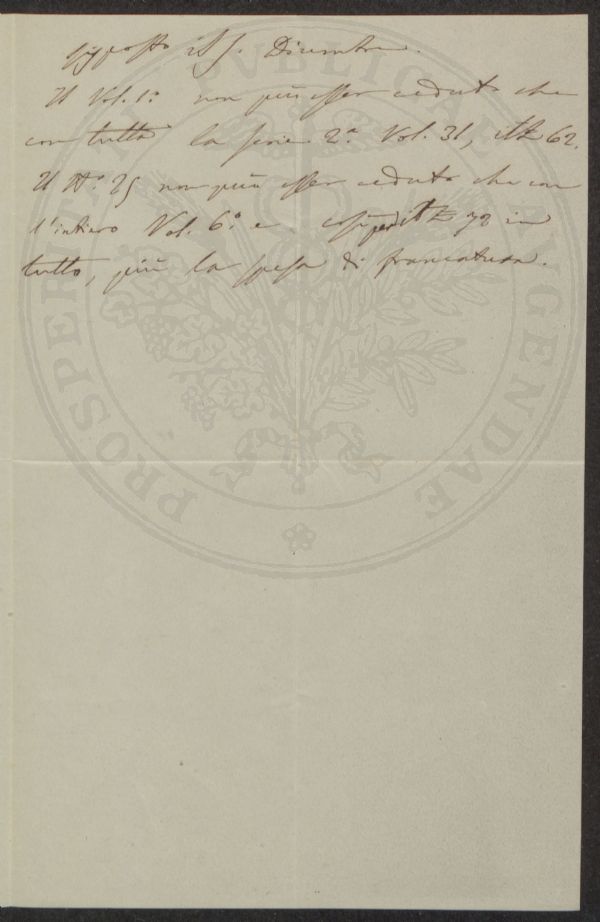 Risposto il 5. Dicembre.
Il Vol. 1º non può esser ceduto che
con tutta la serie 2ª Vol. 31, it£ 62.
Il Nº 25 non può esser ceduto che con
l'intiero Vol. 6º e così per it£ in
tutto, più la spesa di francatura.
PROSPERITATI PVBLICAE AVGENDAE